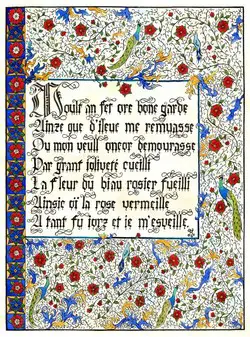 Moult an fet ore bone garde
Ainze que d'ileuc me remuasse
Ou mon veull oncor demourasse
Par grant joliveté cueilli
La fleur du biau rosier fueilli
Ainsic oï la rose vermeille
A tant fu jorz et je m'esveille.